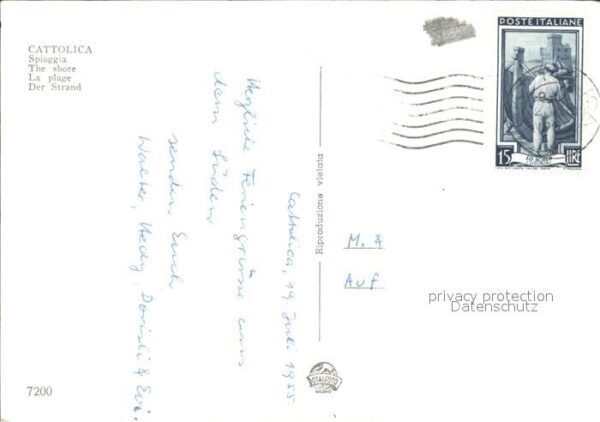 CATTOLICA
Spiaggia
The shore
La plage
Der Strand
POSTE ITALIANE
15 LIRE
Cattolica, 19 Juli 1955.
Herzliche Feriengrüsse aus
dem Süden
senden Euch
Walter, Hedy, Dorisli & Evi.
Riproduzione vietata
M. &
Auf
privacy protection
Datenschutz
7200